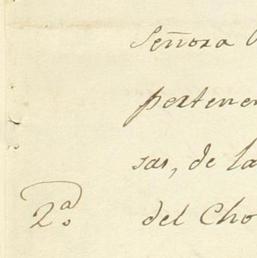 Señora
pertene
sas, de la
2ª. del Cho